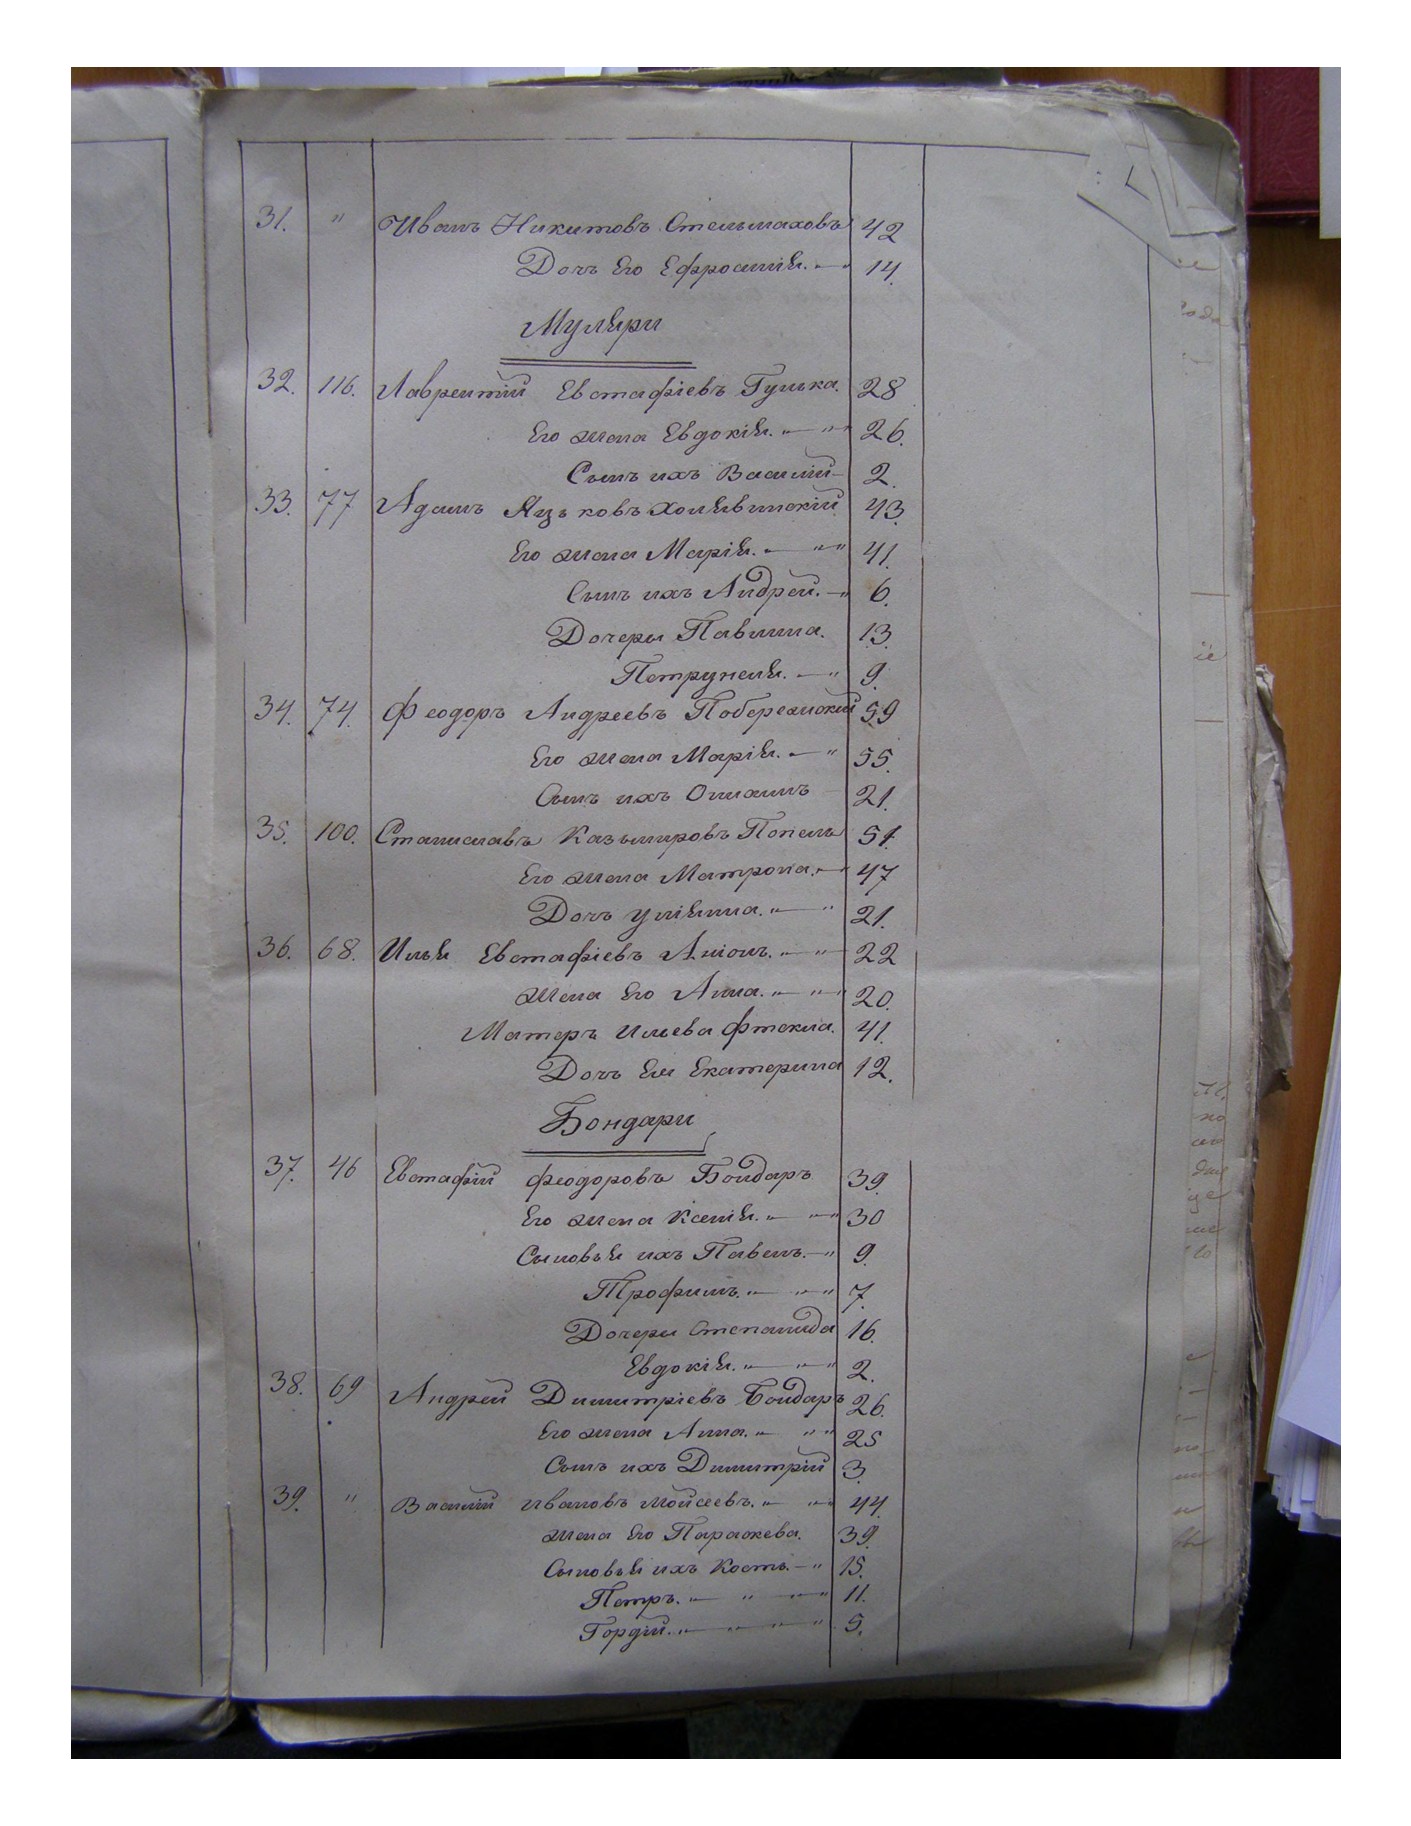 31. " Иванъ Никитовъ Стельмаховъ 42
Дочь Его Ефросинія. 14.
Муляри
32. 116. Лаврентій Евстафіевъ Гулька. 28
Его жена Евдокія. 26.
Сынъ ихъ Василій 2.
33. 77 Адамъ Яцъковъ Холявинскій 43.
Его жена Марія. 41.
Сынъ ихъ Андрей. 6.
Дочеры Павлина. 13.
Петрунеля. 9.
34. 74. Феодоръ Андреевъ Побережскій 59
Его жена Марія. 55.
Сынъ ихъ 21.
35. 100. Станиславъ Казьмировъ Попель 51.
Его жена Матрона. 47
Дочь Уліянна. 21.
36. 68. Илья Евстафіевъ 22
Жена Его Анна. 20.
Матерь Ильева Фтекла. 41.
Дочь Ея Екатерина 12.
Бондари
37. 46 Евстафій Феодоровъ Бондаръ 39.
Его жена Ксенія. 30
Сыновья ихъ Павелъ. 9.
Трофимъ. 7.
Дочери Степанида 16.
Евдокія. 2.
38. 69 Андрей Димитріевъ Бондаръ 26.
Его жена Анна. 25
Сынъ ихъ Димитрій 3.
39. " Василій Ивановъ Мойсеевъ. 44.
Жена Его Параскева. 39.
Сыновья ихъ Кость. 15.
Петръ. 11.
Гордій. 5.